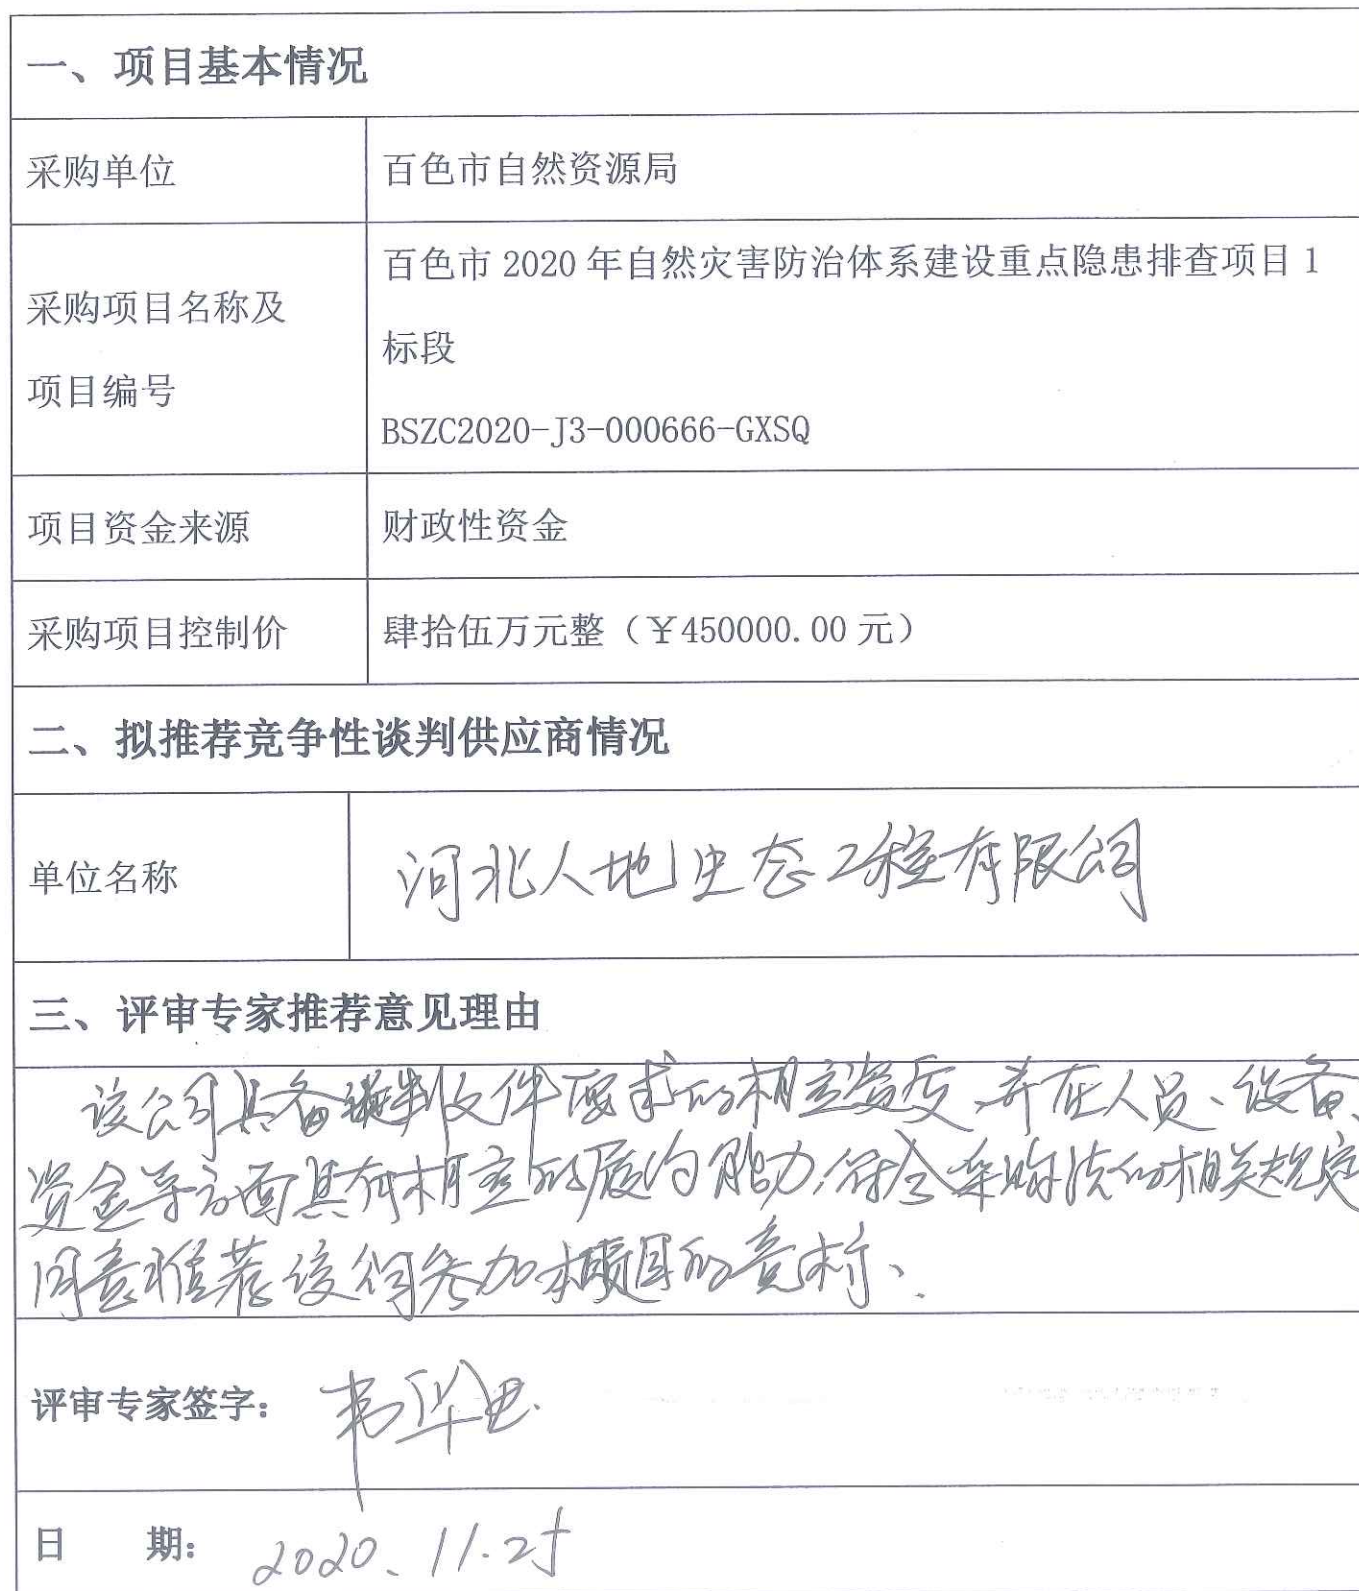 一、项目基本情况
采购单位
百色市自然资源局
采购项目名称及
项目编号
百色市 2020 年自然灾害防治体系建设重点隐患排查项目 1
标段
BSZC2020-J3-000666-GXSQ
项目资金来源
财政性资金
采购项目控制价
肆拾伍万元整（￥450000.00 元）
二、拟推荐竞争性谈判供应商情况
单位名称
河北人地生态工程有限公司
三、评审专家推荐意见理由
该公司具备谈判文件要求的相应资质,并在人员、设备、
资金等方面具有相应的履约能力,符合采购法的相关规定
同意推荐该公司参加本项目的竞标、
评审专家签字：
日 期：
2020、11.25